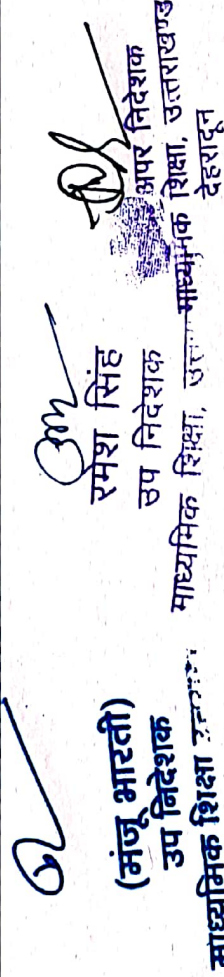 (मंजू भारती)
उप निदेशक
माध्यमिक शिक्षा
रमेश सिंह
उप निदेशक
माध्यमिक शिक्षा,
अपर निदेशक
माध्यमिक शिक्षा, उत्तराखण्ड
देहरादून